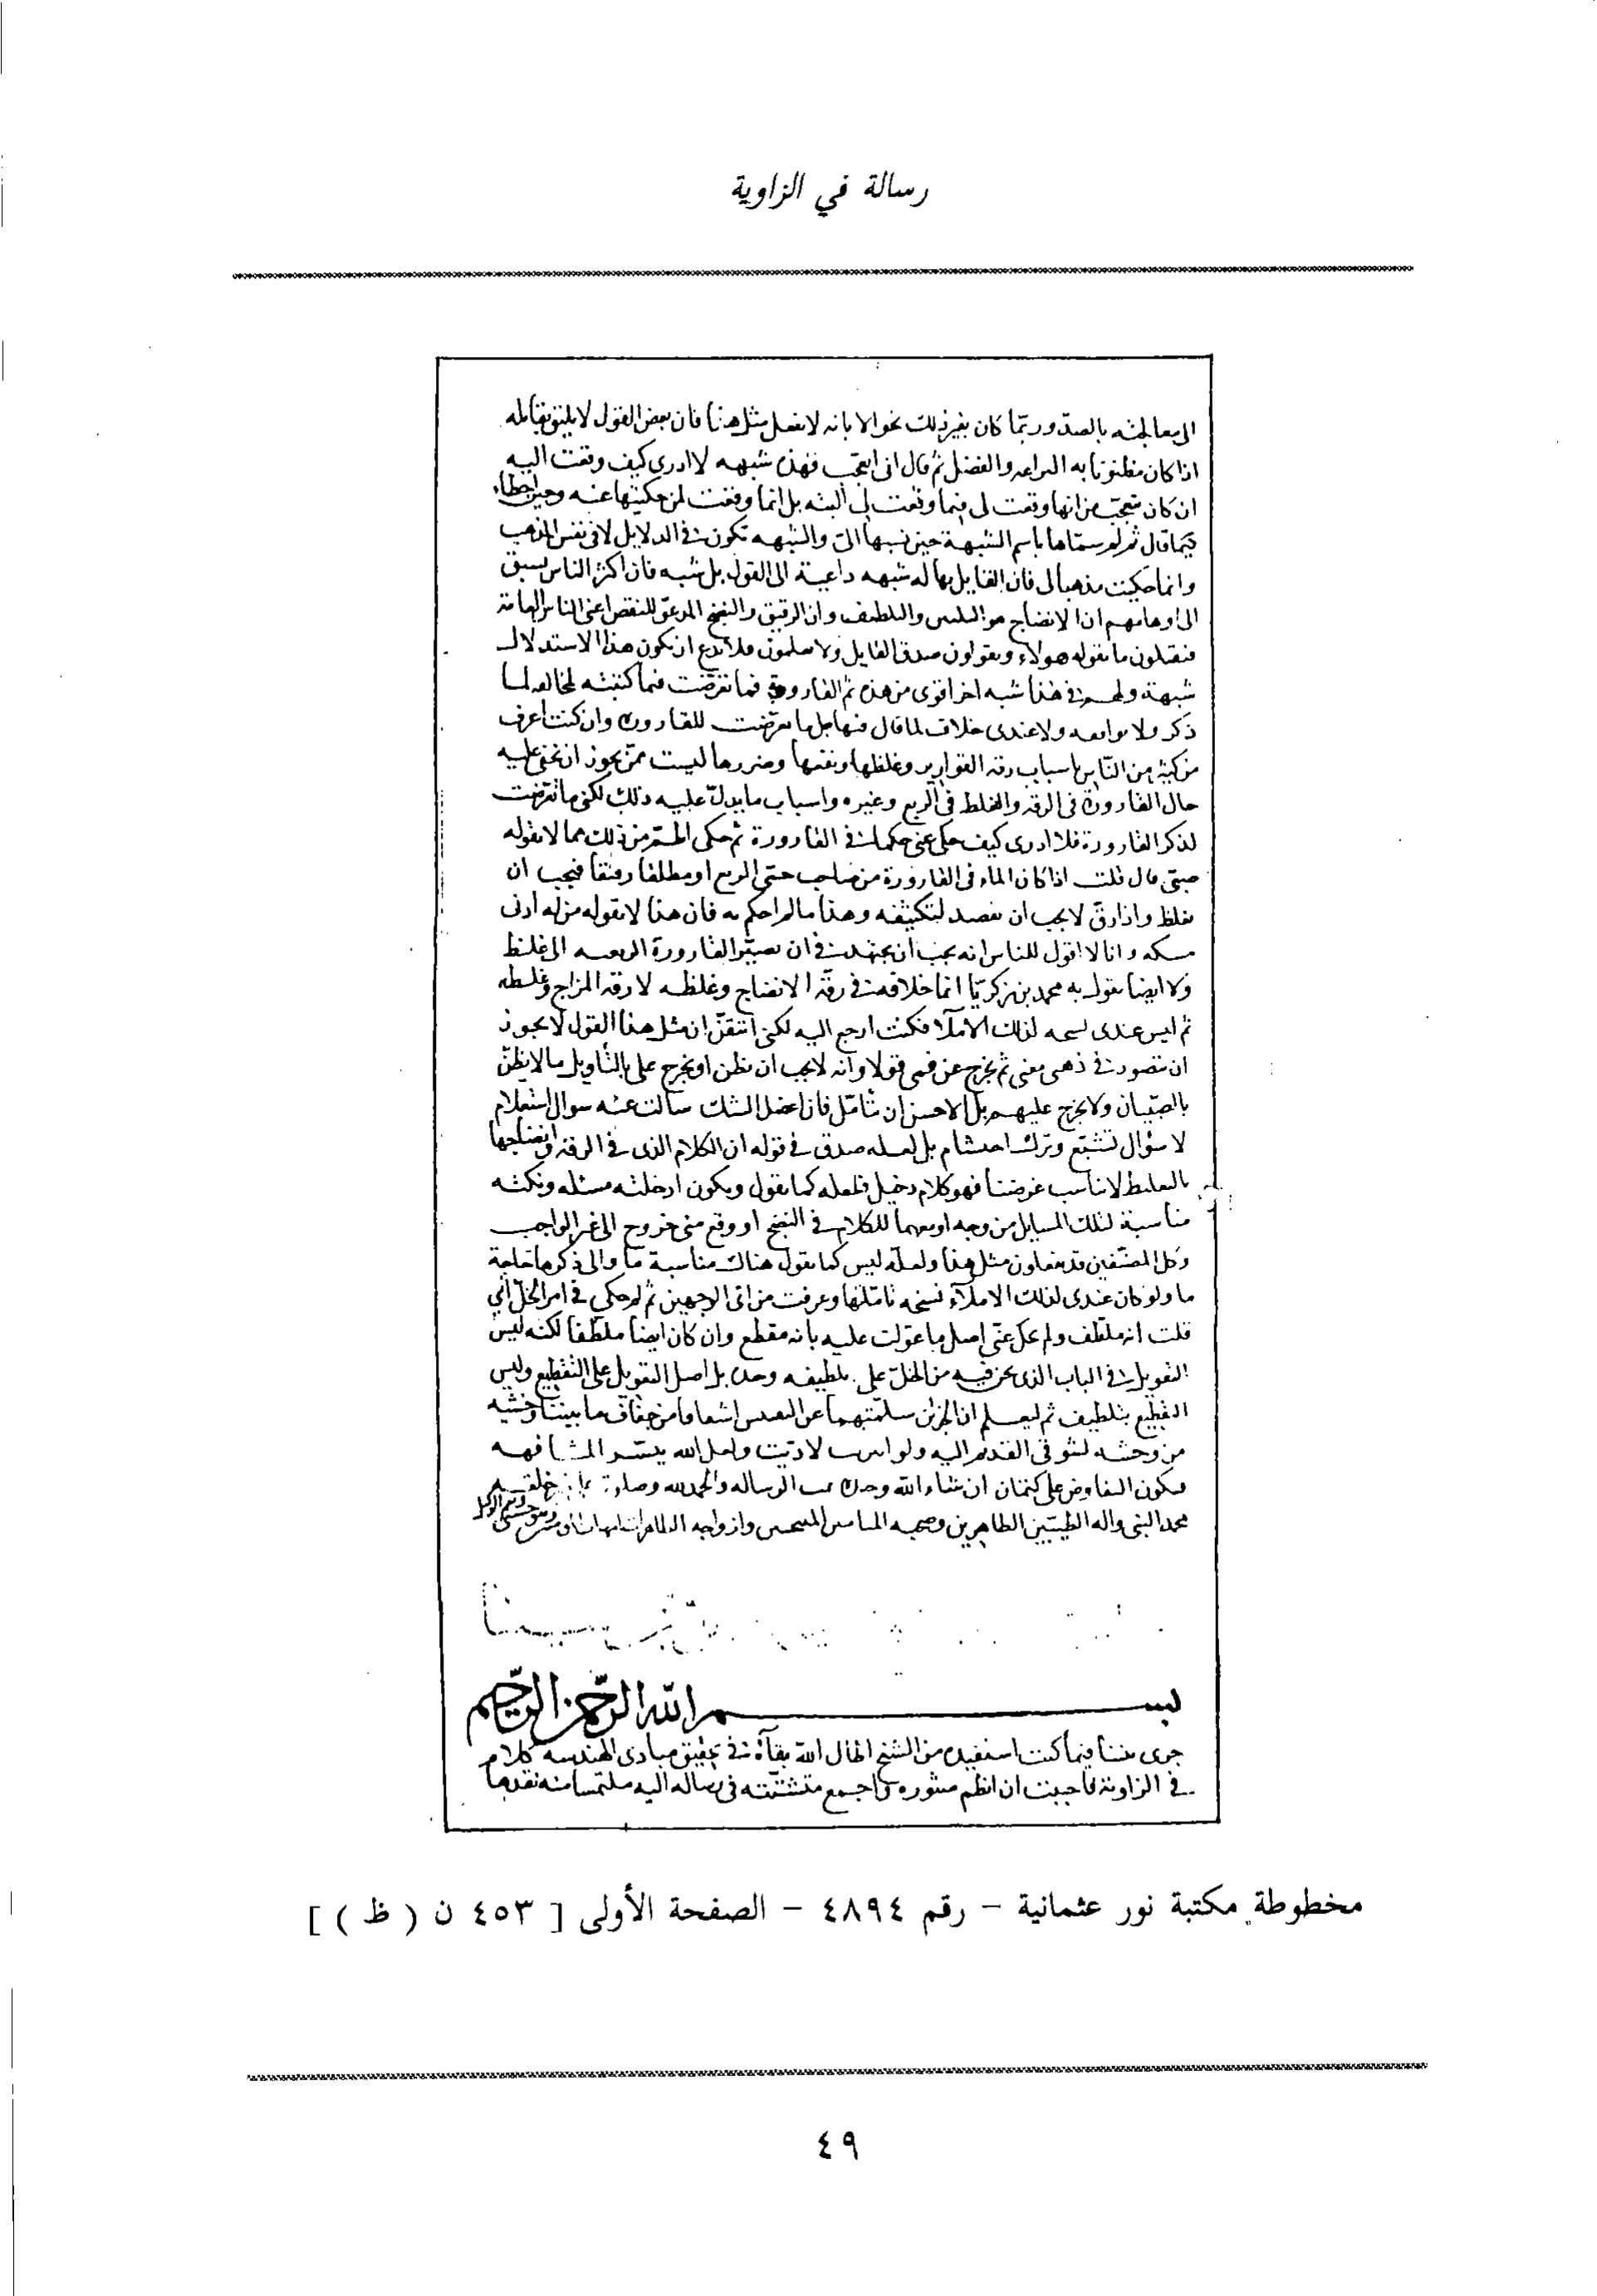 رسالة في الزاوية
الى معالجته بالصد وربما كان بغير ذلك نحو الابانه لا نفعل مثل هذا فان بعض القول لا يليق بقايله
اذا كان مظنونا به البراعه والفضل ثم قال انى اتعجب فهذه شبهه لا ادرى كيف وقعت اليه
ان كان تعجب من انها وقعت لى فيما وقعت لى البته بل انما وقعت لمن حكيتها عنه وحين
فيما قال ثم لم سماها باسم الشبهة حين نسبها الى والشبهه تكون فى الدلايل لا فى نفس المذهب
وانما حكيت مذهبا فان القايل بها له شبهه داعية الى القول بل شبه فان اكثر الناس يسبق
الى اوهامهم ان الانضاج هو التليين والتلطيف وان الرقيق والنضج للنقص اعنى الناس العامة
فيقبلون ما يقوله هولاء ويقولون صدق القايل ولا يعلمون فلا ان يكون هذا الاستدلال
شبهة ولهم فى هذا شبه اخر اقوى من هذه ثم القارورة فما تعرضت فيما كتبته لمخالفه لما
ذكر ولا موافقه ولا عندى خلاف لما قال فيها بل ما تعرضت للقارورة وان كنت اعرف
من كثير من الناس باسباب رقه القوارير وغلظها ونفعها وضررها ليست ممن يجوز ان تخفى عليه
حال القارورة فى الرقه والغلظ فى الربع وغيره واسباب ما يدل عليه ذلك لكنى ما تعرضت
لذكر القارورة فلا ادرى كيف حكى عنى حكما فى القارورة ثم حكى من ذلك مما لا يقوله
صبى قال قلت اذا كان الماء فى القارورة من صاحب حمى الربع او مطلقا رقيقا فيجب ان
يغلظ واذا رق لا يجب ان يقصد لتكثيفه وهذا ما لم احكم به فان هذا لا يقوله من له ادنى
مسكه وانا لا اقول للناس انه يجب ان يجتهد فى ان تصير القارورة الى غلظ
ولا ايضا يقول به محمد بن زكريا انما خلافه فى رقة الانضاج وغلظه لا رقه المزاج وغلظه
ثم ليس عندى نسخه لذلك الاملاء فكنت ارجع اليه لكنى اتيقن ان مثل هذا القول لا يجوز
ان يتصور فى ذهنى معنى ثم يخرج عن فمى قولا وانه لا يجب ان يظن او يخرج على بالتاويل ما لا يظن
بالصبيان ولا يخرج عليهم بل الاحسن ان يتامل فان اعضل الشك سالت عنه سوال استعلام
لا سؤال تشبع وترك احتشام بل لعله صدق فى قوله ان الكلام الذى فى الرقه وانضاجها
بالتغليظ لا يناسب غرضنا فهو كلام دخيل فلعله كما يقول ويكون ادخلته مسئله ونكته
مناسبة لتلك المسايل من وجه للكلام فى النضج او وقع منى خروج الى غير الواجب
وكل المصنفين قد يفعلون مثل هذا ولعله ليس كما يقول هناك مناسبة ما والى ذكرها حاجة
ما ولو كان عندى لذلك الاملاء نسخه تاملتها وعرفت من اى الوجهين ثم لم حكى فى امر الخل انى
قلت انه ملطف ولم يحك عنى اصل ما عولت عليه بانه مقطع وان كان ايضا ملطفا لكنه ليس
التعويل فى الباب الذى نحن فيه من الخل على تلطيفه وحده بل اصل التعويل على التقطيع وليس
التقطيع بتلطيف ثم ليعلم ان من جفاف ما بيننا وخشيه
من وحشه لشوقى القديم اليه ولو لاديت ولعل الله ييسر المشافهه
فيكون التفاوض على كتمان ان شاء الله وحده تمت الرساله والحمد لله وصلوته على خير خلقه
محمد النبى واله الطيبين الطاهرين وصحبه وازواجه الطاهرات امهات المومنين وهو حسبى ونعم الوكيل
بسم الله الرحمن الرحيم
جرى بيننا فيما كنت استفيده من الشيخ اطال الله بقآه فى تحقيق مبادى الهندسه كلام
فى الزاوية فاحببت ان انظم منثوره واجمع متشتته فى رساله اليه ملتمسا منه نقدها
مخطوطة مكتبة نور عثمانية - رقم ٤٨٩٤ - الصفحة الأولى [ ٤٥٣ ن ( ظ ) ]
٤٩